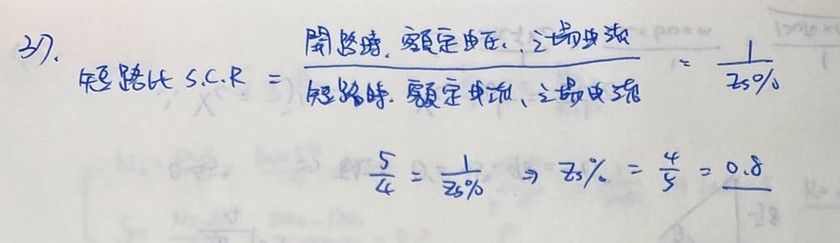 37.
短路比 S.C.R = 開路時、額定電压、之場电流 / 短路時、額定电流、之場电流 = 1 / Zs%
5/4 = 1/Zs% ⇒ Zs% = 4/5 = 0.8